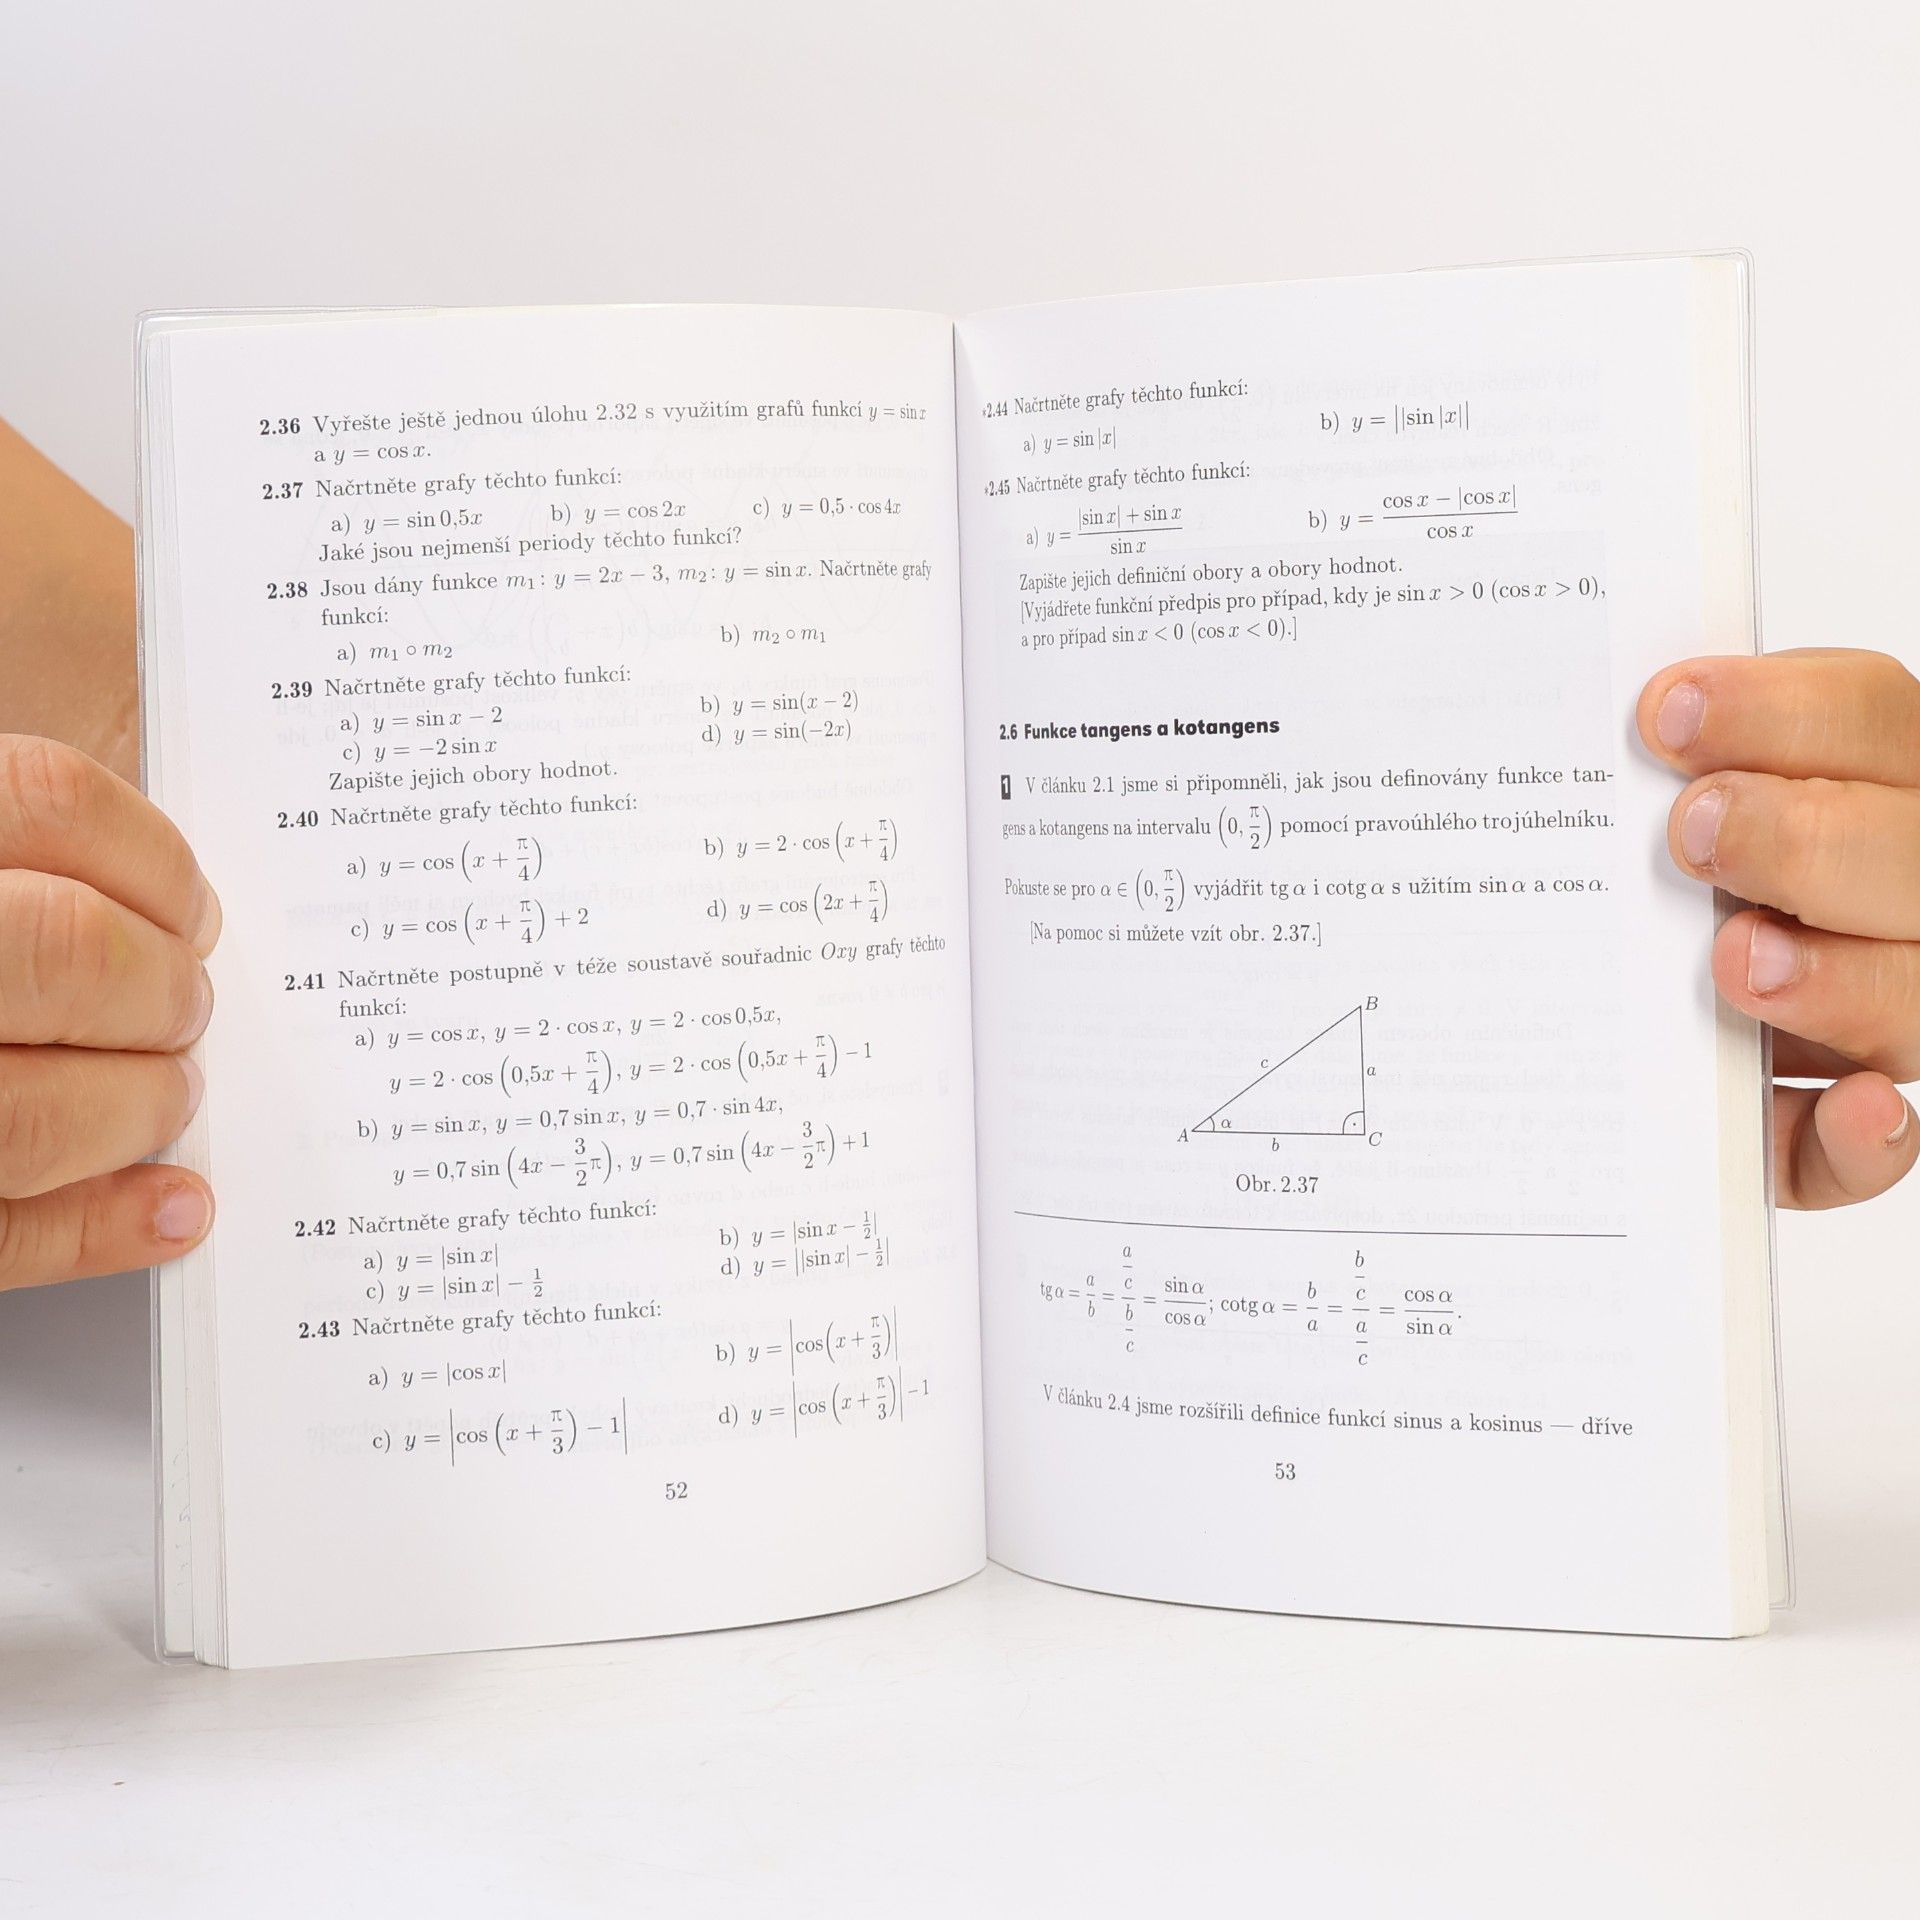 2.36 Vyřešte ještě jednou úlohu 2.32 s využitím grafů funkcí y = sin x
a y = cos x.
2.37 Načrtněte grafy těchto funkcí:
a) y = sin 0,5x b) y = cos 2x c) y = 0,5 · cos 4x
Jaké jsou nejmenší periody těchto funkcí?
2.38 Jsou dány funkce m₁: y = 2x − 3, m₂: y = sin x. Načrtněte grafy
funkcí:
a) m₁ ∘ m₂ b) m₂ ∘ m₁
2.39 Načrtněte grafy těchto funkcí:
a) y = sin x − 2 b) y = sin(x − 2)
c) y = −2 sin x d) y = sin(−2x)
Zapište jejich obory hodnot.
2.40 Načrtněte grafy těchto funkcí:
a) y = cos (x + π/4) b) y = 2 · cos (x + π/4)
c) y = cos (x + π/4) + 2 d) y = cos (2x + π/4)
2.41 Načrtněte postupně v téže soustavě souřadnic Oxy grafy těchto
funkcí:
a) y = cos x, y = 2 · cos x, y = 2 · cos 0,5x,
y = 2 · cos (0,5x + π/4), y = 2 · cos (0,5x + π/4) − 1
b) y = sin x, y = 0,7 sin x, y = 0,7 · sin 4x,
y = 0,7 sin (4x − 3/2 π), y = 0,7 sin (4x − 3/2 π) + 1
2.42 Načrtněte grafy těchto funkcí:
a) y = |sin x| b) y = |sin x − 1/2|
c) y = |sin x| − 1/2 d) y = ||sin x| − 1/2|
2.43 Načrtněte grafy těchto funkcí:
a) y = |cos x| b) y = |cos(x + π/3)|
c) y = |cos (x + π/3) − 1| d) y = |cos (x + π/3)| − 1
52
*2.44 Načrtněte grafy těchto funkcí:
a) y = sin |x| b) y = ||sin |x||
*2.45 Načrtněte grafy těchto funkcí:
a) y = (|sin x| + sin x)/sin x b) y = (cos x − |cos x|)/cos x
Zapište jejich definiční obory a obory hodnot.
[Vyjádřete funkční předpis pro případ, kdy je sin x > 0 (cos x > 0),
a pro případ sin x < 0 (cos x < 0).]
2.6 Funkce tangens a kotangens
1 V článku 2.1 jsme si připomněli, jak jsou definovány funkce tan-
gens a kotangens na intervalu (0, π/2) pomocí pravoúhlého trojúhelníku.
Pokuste se pro α ∈ (0, π/2) vyjádřit tg α i cotg α s užitím sin α a cos α.
[Na pomoc si můžete vzít obr. 2.37.]
B
c a
A α C
b
Obr. 2.37
tg α = a/b = (a/c)/(b/c) = sin α/cos α; cotg α = b/a = (b/c)/(a/c) = cos α/sin α.
V článku 2.4 jsme rozšířili definice funkcí sinus a kosinus — dříve
53